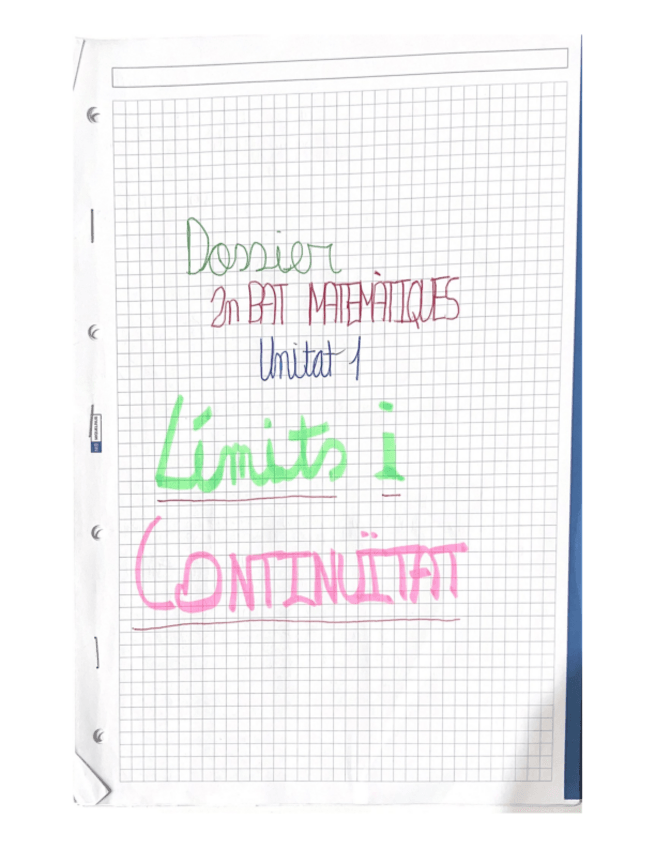 Dossier
2n BAT MATEMÀTIQUES
Unitat 1
Límits i
CONTINUÏTAT